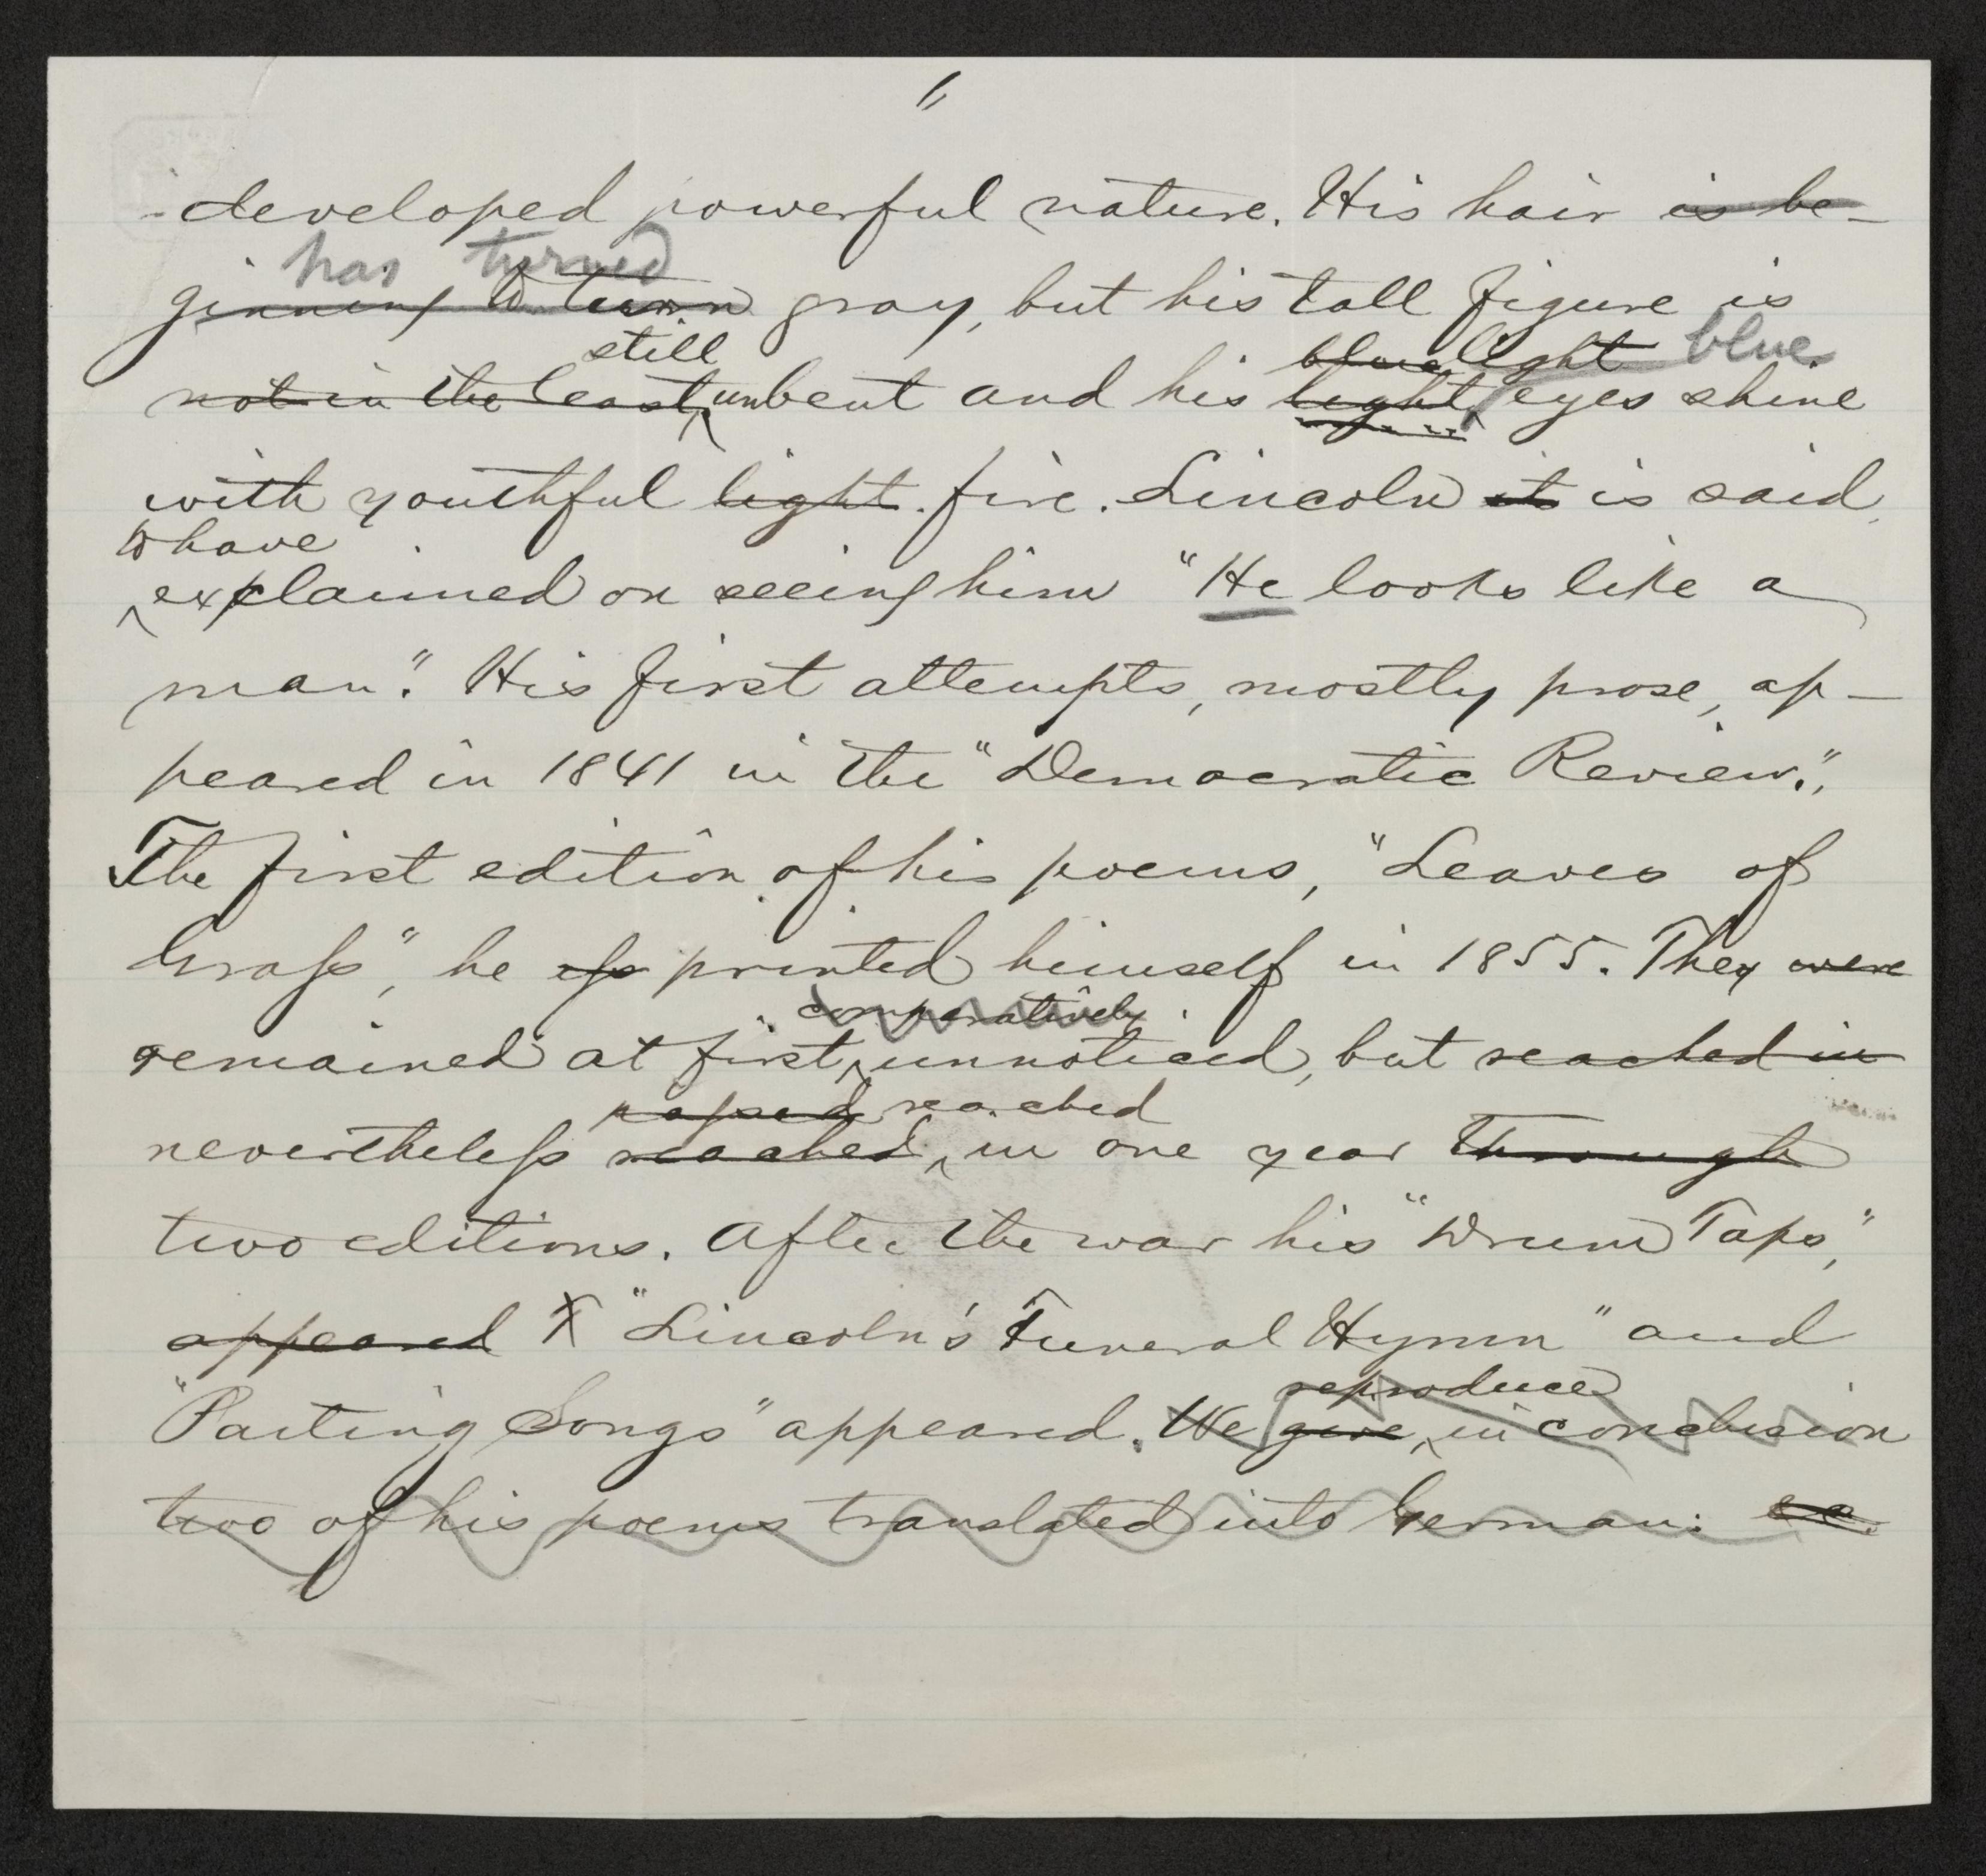 developed powerful nature. His hair is be-
has turned
ginning to turn gray, but his tall figure is
still blue light blue
not in the least unbent and his light eyes shine
with youthful light. fire. Lincoln it is said
to have
explaimed on seeing him "He looks like a
man." His first attempts, mostly prose, ap-
peared in 1841 in the "Democratic Review."
The first edition of his poems, "Leaves of
Grass", he printed himself in 1855. They were
comparatively
remained at first unnoticed, but reached in
passed reached
nevertheless reached in one year through
two editions. After the war his "Drum Taps,"
appeared "Lincoln's Funeral Hymn" and
reproduce
"Parting Songs" appeared. We give, in conclusion
two of his poems translated into German: